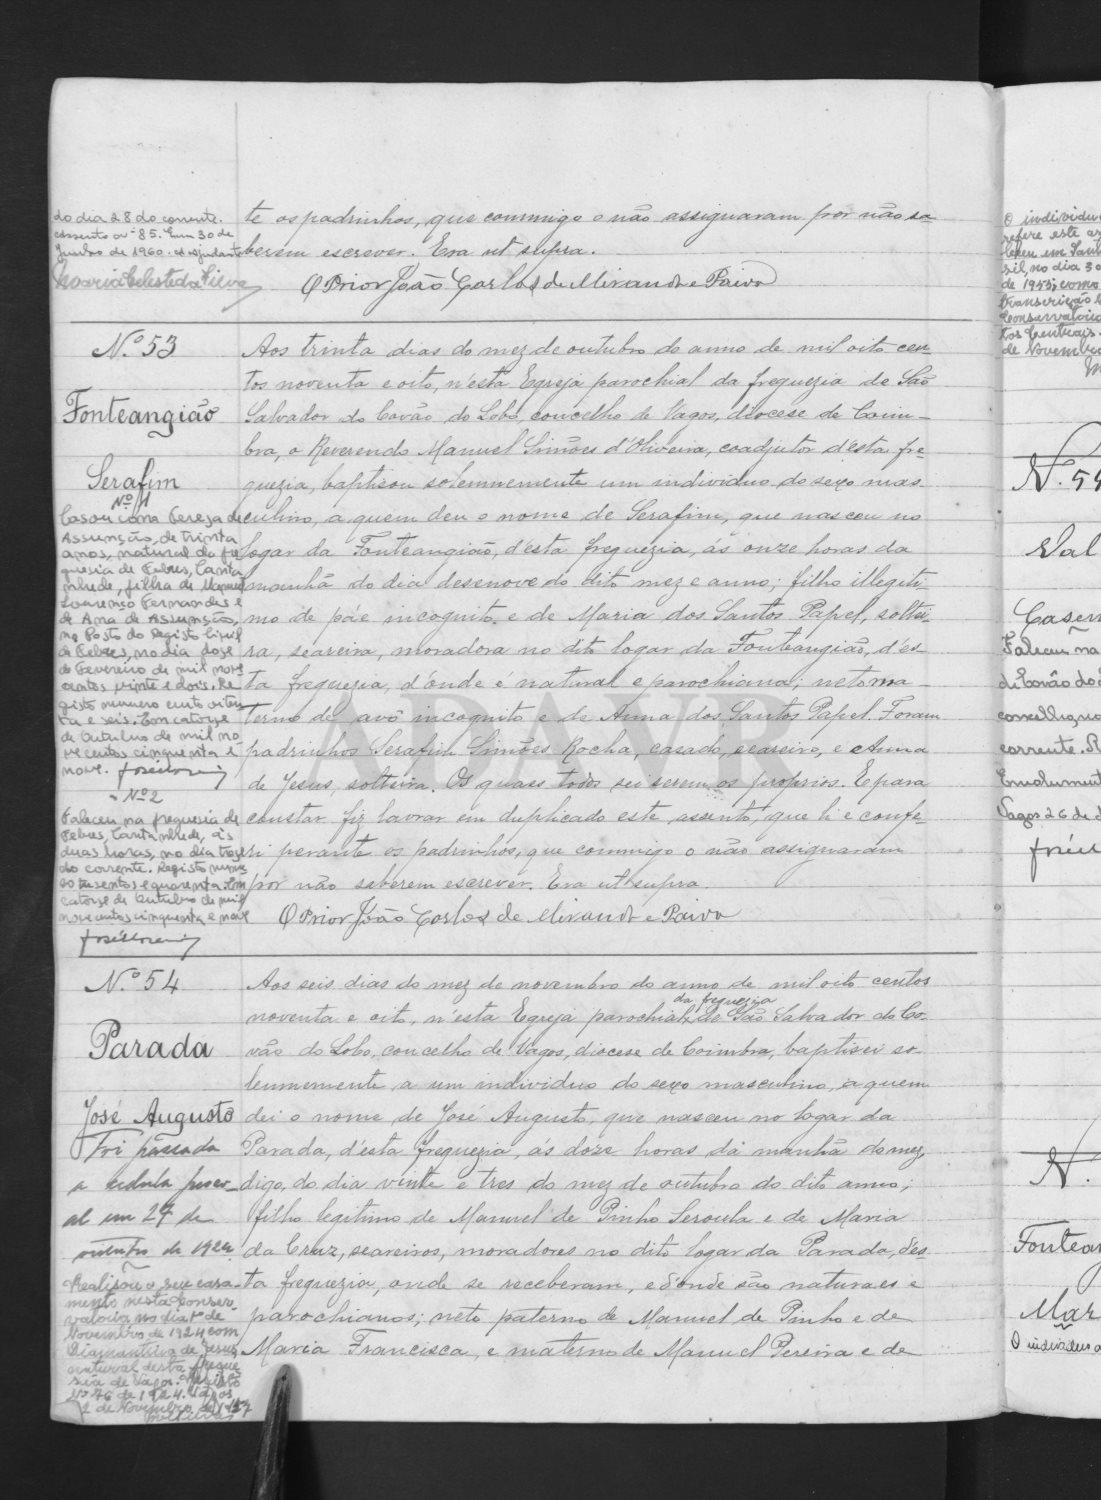 do dia 28 do corrente.
assento nº 85. Em 30 de
Junho de 1960. A ajudante
Maria Celeste da Silva
te os padrinhos, que commigo o não assignaram por não sa-
berem escrever. Era ut supra.
O Prior João Carlos de Miranda e Paiva
N.º 53
Fonteangião
Serafim
Nº 1
Casou com Tereza de
Assunção, de trinta
anos, natural da fre
guesia de Febres, Canta
nhede, filha de Manuel
Lourenço Fernandes e
de Ana de Assunção,
no Posto do Registo Civil
de Febres, no dia doze
de Fevereiro de mil nove
centos vinte e dois. Re
gisto numero cento oiten
ta e seis. Em catorze
de Outubro de mil no
ve centos cinquenta e
nove.
Nº 2
Faleceu na freguesia de
Febres, Cantanhede, ás
duas horas, no dia treze
do corrente. Registo nume
ro tresentos e quarenta. Em
catorze de Outubro de mil
nove centos cinquenta e nove
Aos trinta dias do mez de outubro do anno de mil oito cen-
tos noventa e oito, n'esta Egreja parochial da freguezia de São
Salvador do Covão do Lobo, concelho de Vagos, diocese de Coim-
bra, o Reverendo Manuel Simões d'Oliveira, coadjutor d'esta fre-
guezia, baptisou solemnemente um individuo do sexo mas
culino, a quem deu o nome de Serafim, que nasceu no
logar da Fonteangião, d'esta freguezia, ás onze horas da
manhã do dia desenove do dito mez e anno; filho illegiti-
mo de páe incognito e de Maria dos Santos Papel, soltei-
ra, seareira, moradora no dito logar da Fonteangião, d'es-
ta freguezia, d'onde é natural e parochiana; neto ma-
terno de avô incognito e de Anna dos Santos Papel. Foram
padrinhos Serafim Simões Rocha, casado, seareiro, e Anna
de Jesus, solteira. Os quaes todos sei serem os proprios. E para
constar fiz lavrar em duplicado este assento, que li e confe-
ri perante os padrinhos, que commigo o não assignaram
por não saberem escrever. Era ut supra.
O Prior João Carlos de Miranda e Paiva
N.º 54
Parada
José Augusto
Foi passada
a cedula pesso-
al em 27 de
outubro de 1924
Realisou o seu casa-
mento nesta Conser-
vatoria no dia 1º de
Novembro de 1924 com
Diamantina de Jesus
natural desta fregue
sia de Vagos. Registo
Nº 76 de 1924. Vagos
2 de Novembro de
Aos seis dias do mez de novembro do anno de mil oito centos
noventa e oito, n'esta Egreja parochial da freguezia de São Salvador do Co-
vão do Lobo, concelho de Vagos, diocese de Coimbra, baptisei so-
lemnemente a um individuo do sexo masculino, a quem
dei o nome de José Augusto, que nasceu no logar da
Parada, d'esta freguezia, ás doze horas da manhã do mez,
digo, do dia vinte e tres do mez de outubro do dito anno;
filho legitimo de Manuel de Pinho Seroula e de Maria
da Cruz, seareiros, moradores no dito logar da Parada, d'es-
ta freguezia, onde se receberam, e d'onde são naturaes e
parochianos; neto paterno de Manuel de Pinho e de
Maria Francisca, e materno de Manuel Pereira e de
ADAVR
O individu
refere este as
de 1953; como
transcrição
Conservatoria
tos Centrais.
de Novembro
N.
Val
Faleceu na
de Covão do
concelho
corrente. R
Emolument
Vagos 26 de
N.
Fontean
Mar
O individuo a